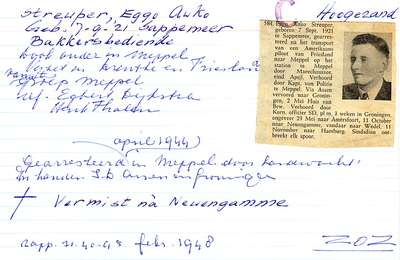 Streuper, Eggo Auko
Hoogezand
Geb. 7-9-21 Sappemeer
Bakkersbediende
Zat onder in Meppel
in Drenthe en Friesland
vanuit
Meppel
Egbert Dijkstra
Henk
(april 1944)
Gearresteerd in Meppel door Landwacht
In handen S.D. Assen en Groningen
† Vermist nà Neuengamme
Rapp. 21.40-45 febr. 1948
ZOZ
384. Eggo Auko Streuper,
geboren: 7 Sept. 1921
te Sappemeer, gearresteerd
na het transport
van een Amerikaans
piloot van Friesland
naar Meppel op het
station te Meppel
door Marechaussee,
eind April, Verhoord
door Kapt. van Politie
te Meppel. Via Assen
vervoerd naar Groningen,
2 Mei Huis van
Bew. Verhoord door
Korn, officier SD, pl.m. 3 weken in Groningen,
ongeveer 23 Mei naar Amersfoort, 11 October
naar Neuengamme, vandaar naar Wedel, 11
November naar Hamburg. Sindsdien ontbreekt
elk spoor.